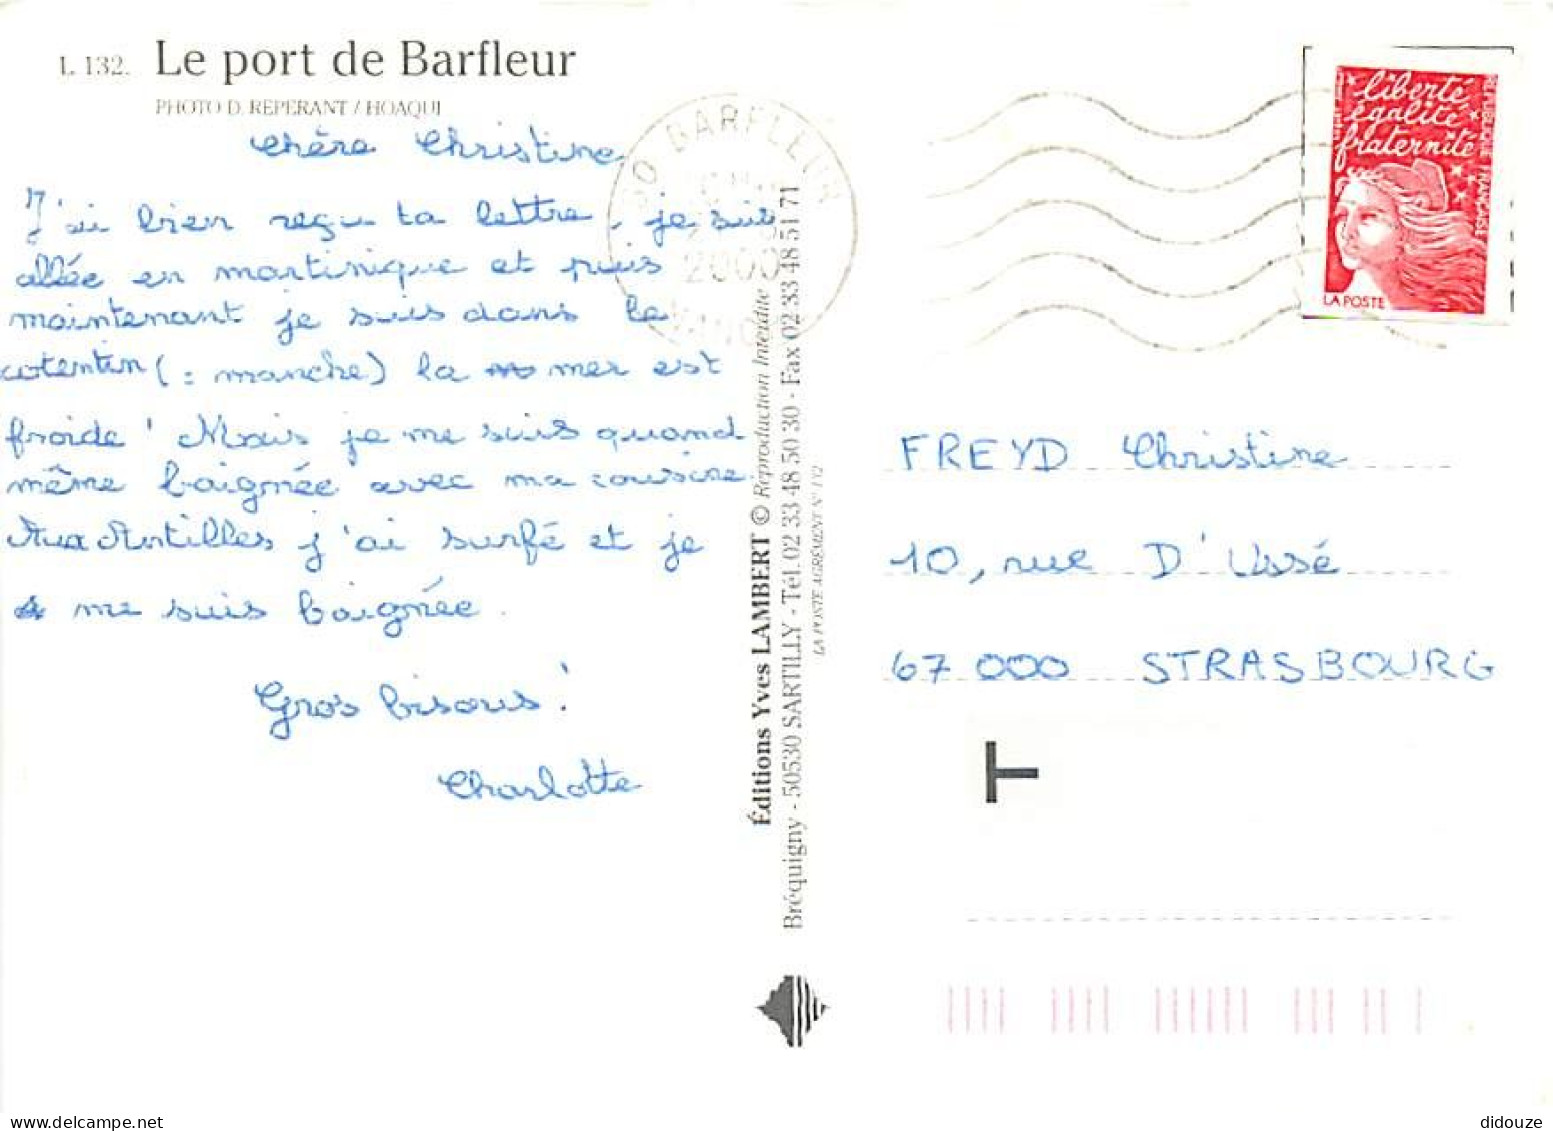 L 132. Le port de Barfleur
PHOTO D. REPERANT / HOAQUI
Chère Christine
J'ai bien reçu ta lettre, je suis
allée en martinique et puis
maintenant je suis dans le
cotentin (= manche) la mer est
froide ! Mais je me suis quand
même baignée avec ma cousine.
Aux Antilles j'ai surfé et je
me suis baignée.
Gros bisous !
Charlotte
Éditions Yves LAMBERT © Reproduction Interdite
Bréquigny - 50530 SARTILLY - Tél. 02 33 48 50 30 - Fax 02 33 48 51 71
LA POSTE AGRÉMENT N° 132
50 BARFLEUR
2000
MANCHE
liberté
égalité
fraternité
REPUBLIQUE FRANÇAISE
LA POSTE
FREYD Christine
10, rue D'Ussé
67 000 STRASBOURG
T
didouze